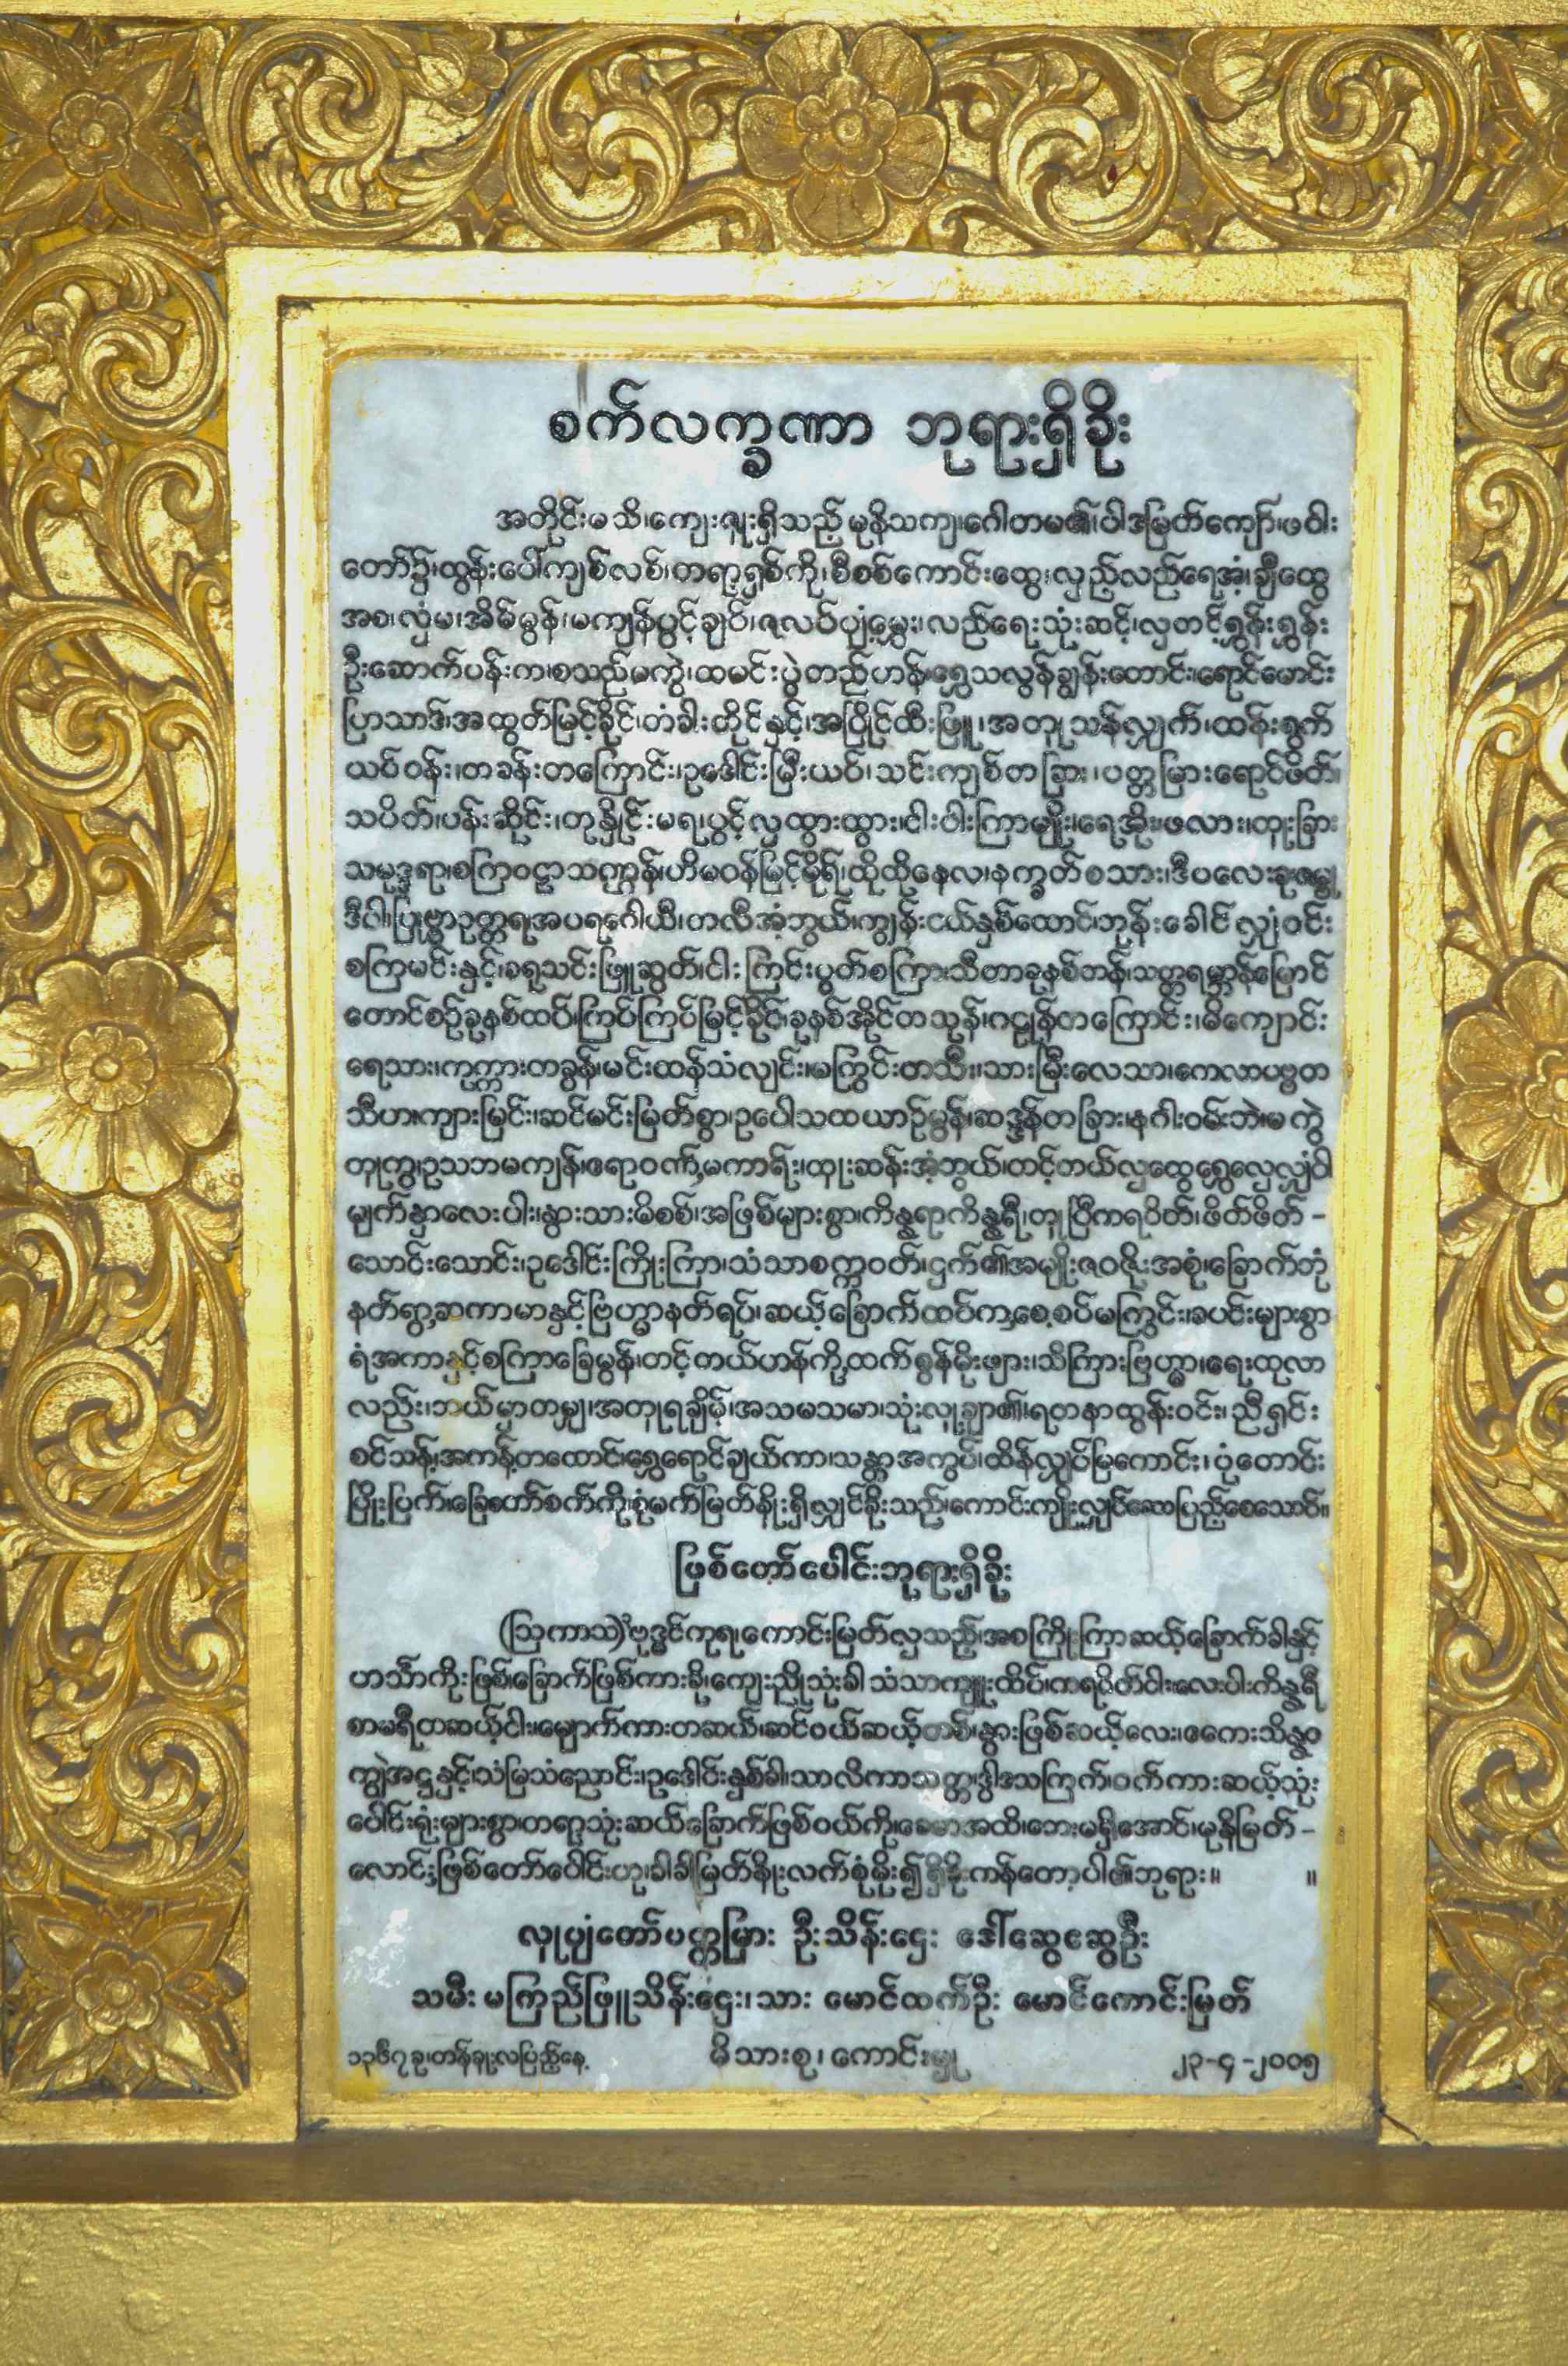 စက်လက္ခဏာ ဘုရားရှိခိုး
အတိုင်းမသိ၊ကျေးဇူးရှိသည့်မုနိသကျ၊ဂေါတမ၏၊ပါဒမြတ်ကျော်၊ဖဝါး
တော်၌၊ထွန်းပေါ်ကျစ်လစ်၊တရာ့ရှစ်ကို၊စီစစ်ကောင်းထွေ၊လှည့်လည်ရေအံ့၊ချီထွေ
အစ၊လှံမ၊အိမ်မွန်၊မကျန်ပွင့်ချပ်၊ဇလပ်ပျံ့မွှေး၊လည်ရေးသုံးဆင့်၊လှတင့်ရွှန်းရွှန်း
ဦးဆောက်ပန်းက၊စသည်မကွဲ၊ထမင်းပွဲတည်ဟန်၊ရွှေသလွန်ချွန်းတောင်း၊ရောင်မောင်း
ပြာသာဒ်၊အထွတ်မြင့်ခိုင်၊တံခါးတိုင်နှင့်၊အပြိုင်ထီးဖြူ၊အတုသန်လျက်၊ထန်းရွက်
ယပ်ဝန်း၊တခန်းတကြောင်း၊ဥဒေါင်းမြီးယပ်၊သင်းကျစ်တခြား၊ပတ္တမြားရောင်ဖိတ်၊
သပိတ်၊ပန်းဆိုင်း၊တုနှိုင်းမရ၊ပွင့်လှထွားထွား၊ငါးပါးကြာမျိုး၊ရေအိုးဖလား၊ထူးခြား
သမုဒ္ဒရာ၊စကြဝဠာသဏ္ဌာန်၊ဟိမဝန်မြင့်မိုရ်၊ထိုထိုနေလ၊နက္ခတ်စသား၊ဒီပလေးခုဇမ္ဗူ
ဒီပါ၊ပြုဗ္ဗာဥတ္တရ၊အပရဂေါယီ၊တလီအံ့ဘွယ်၊ကျွန်းငယ်နှစ်ထောင်၊ဘုန်းခေါင်လျှံဝင်း
စကြမင်းနှင့်၊ခရုသင်းဖြူဆွတ်၊ငါးကြင်းပွတ်စကြာ၊သီတာခုနစ်ဘန်၊သတ္တရမ္ဘာန်မြောင်
တောင်စဉ်ခုနစ်ထပ်၊ကြပ်ကြပ်မြင့်ခိုင်၊ခုနစ်အိုင်တသုန်၊ဂဠုန်တကြောင်း၊မိကျောင်း
ရေသား၊ကုက္ကားတခွန်၊မင်းထန်သံလျင်း၊မကြွင်းတသီး၊သားမြီးလေသာ၊ကေလာပဗ္ဗတ
သီဟ၊ကျားမြင်း၊ဆင်မင်းမြတ်စွာ၊ဥပေါသထယာဉ်မွန်၊ဆဒ္ဒန်တခြား၊နဂါးဝမ်းဘဲ၊မကွဲ
တူကွ၊ဥသဘမကျန်၊ဧရာဝဏ်၊မကာရ်း၊ထူးဆန်းအံ့ဘွယ်၊တင့်တယ်လှထွေ၊ရွှေလှေလျှံဝါ
မျက်နှာလေးပါး၊နွားသားမိစစ်၊အဖြစ်များစွာ၊ကိန္နရာကိန္နရီ၊တူပြီကရဝိတ်၊ဖိတ်ဖိတ် -
သောင်းသောင်း၊ဥဒေါင်းကြိုးကြာ၊သံသာစက္ကဝတ်၊ငှက်၏အမျိုး၊ဇဝဇိုးအစုံ၊ခြောက်ဘုံ
နတ်ရွာ့ဆကာမာနှင့်ဗြဟ္မာနတ်ရပ်၊ဆယ့်ခြောက်ထပ်က၊စေ့စပ်မကြွင်း၊ခပင်းများစွာ
ရံအကာနှင့်စကြာခြေမွန်၊တင့်တယ်ဟန်ကို၊ထက်စွန်မိုးဖျား၊သိကြားဗြဟ္မာ၊ရေးထုလာ
လည်း၊ဘယ်မှာတမျှ၊အတုရချိမ့်၊အသမသမာ၊သုံးလူ့ချာ၏၊ရတနာထွန်းဝင်း၊ညီရှင်း
စင်သန့်၊အကန့်တထောင်၊ရွှေရောင်ချယ်ကာ၊သန္တာအကွပ်၊ထိန်လျှပ်မြကောင်း၊ပုံတောင်း
ပြိုးပြက်၊ခြေတော်စက်ကို၊စုံမက်မြတ်နိုး၊ရှိလျှင်ခိုးသည်၊ကောင်းကျိုးလျှင်ဆောပြည့်စေသောဝ်။
ဖြစ်တော်ပေါင်းဘုရားရှိခိုး
(ဩကာသ)ဗုဒ္ဓင်ကုရ၊ကောင်းမြတ်လှသည့်၊အစကြိုးကြာဆယ့်ခြောက်ခါနှင့်
ဟင်္သာကိုးဖြစ်၊ခြောက်ဖြစ်ကားခို၊ကျေးညိုသုံးခါ သံသာကျူးထိပ်၊ကရဝိတ်ငါး၊လေးပါးကိန္နရီ
စာမရီတဆယ့်ငါး၊မျောက်ကားတဆယ်၊ဆင်ဝယ်ဆယ့်တစ်၊နွားဖြစ်ဆယ့်လေး၊ဧကေးသိန္ဓဝ
ကျွဲအဋ္ဌနှင့်၊သံမြသံညောင်း၊ဥဒေါင်းနှစ်ခါ၊သာလိကာသတ္တ၊ဒွါဒသကြက်၊ဝက်ကားဆယ့်သုံး
ပေါင်းရုံးများစွာ၊တရာ့သုံးဆယ်ခြောက်ဖြစ်ဝယ်ကို၊ခေမာအထိ၊ဘေးမရှိအောင်၊မုနိမြတ် -
လောင်း၊ဖြစ်တော်ပေါင်းဟု၊ခါခါမြတ်နိုး၊လက်စုံမိုး၍ရှိခိုးကန်တော့ပါ၏ဘုရား။ ။
လှူပျံတော်ပတ္တမြား ဦးသိန်းဌေး ဒေါ်ဆွေဆွေဦး
သမီး မကြည်ဖြူသိန်းဌေး၊သား မောင်ထက်ဦး မောင်ကောင်းမြတ်
၁၃၆၇ခု၊တန်ခူးလပြည့်နေ့ မိသားစု၊ကောင်းမှု ၂၃-၄-၂၀၀၅